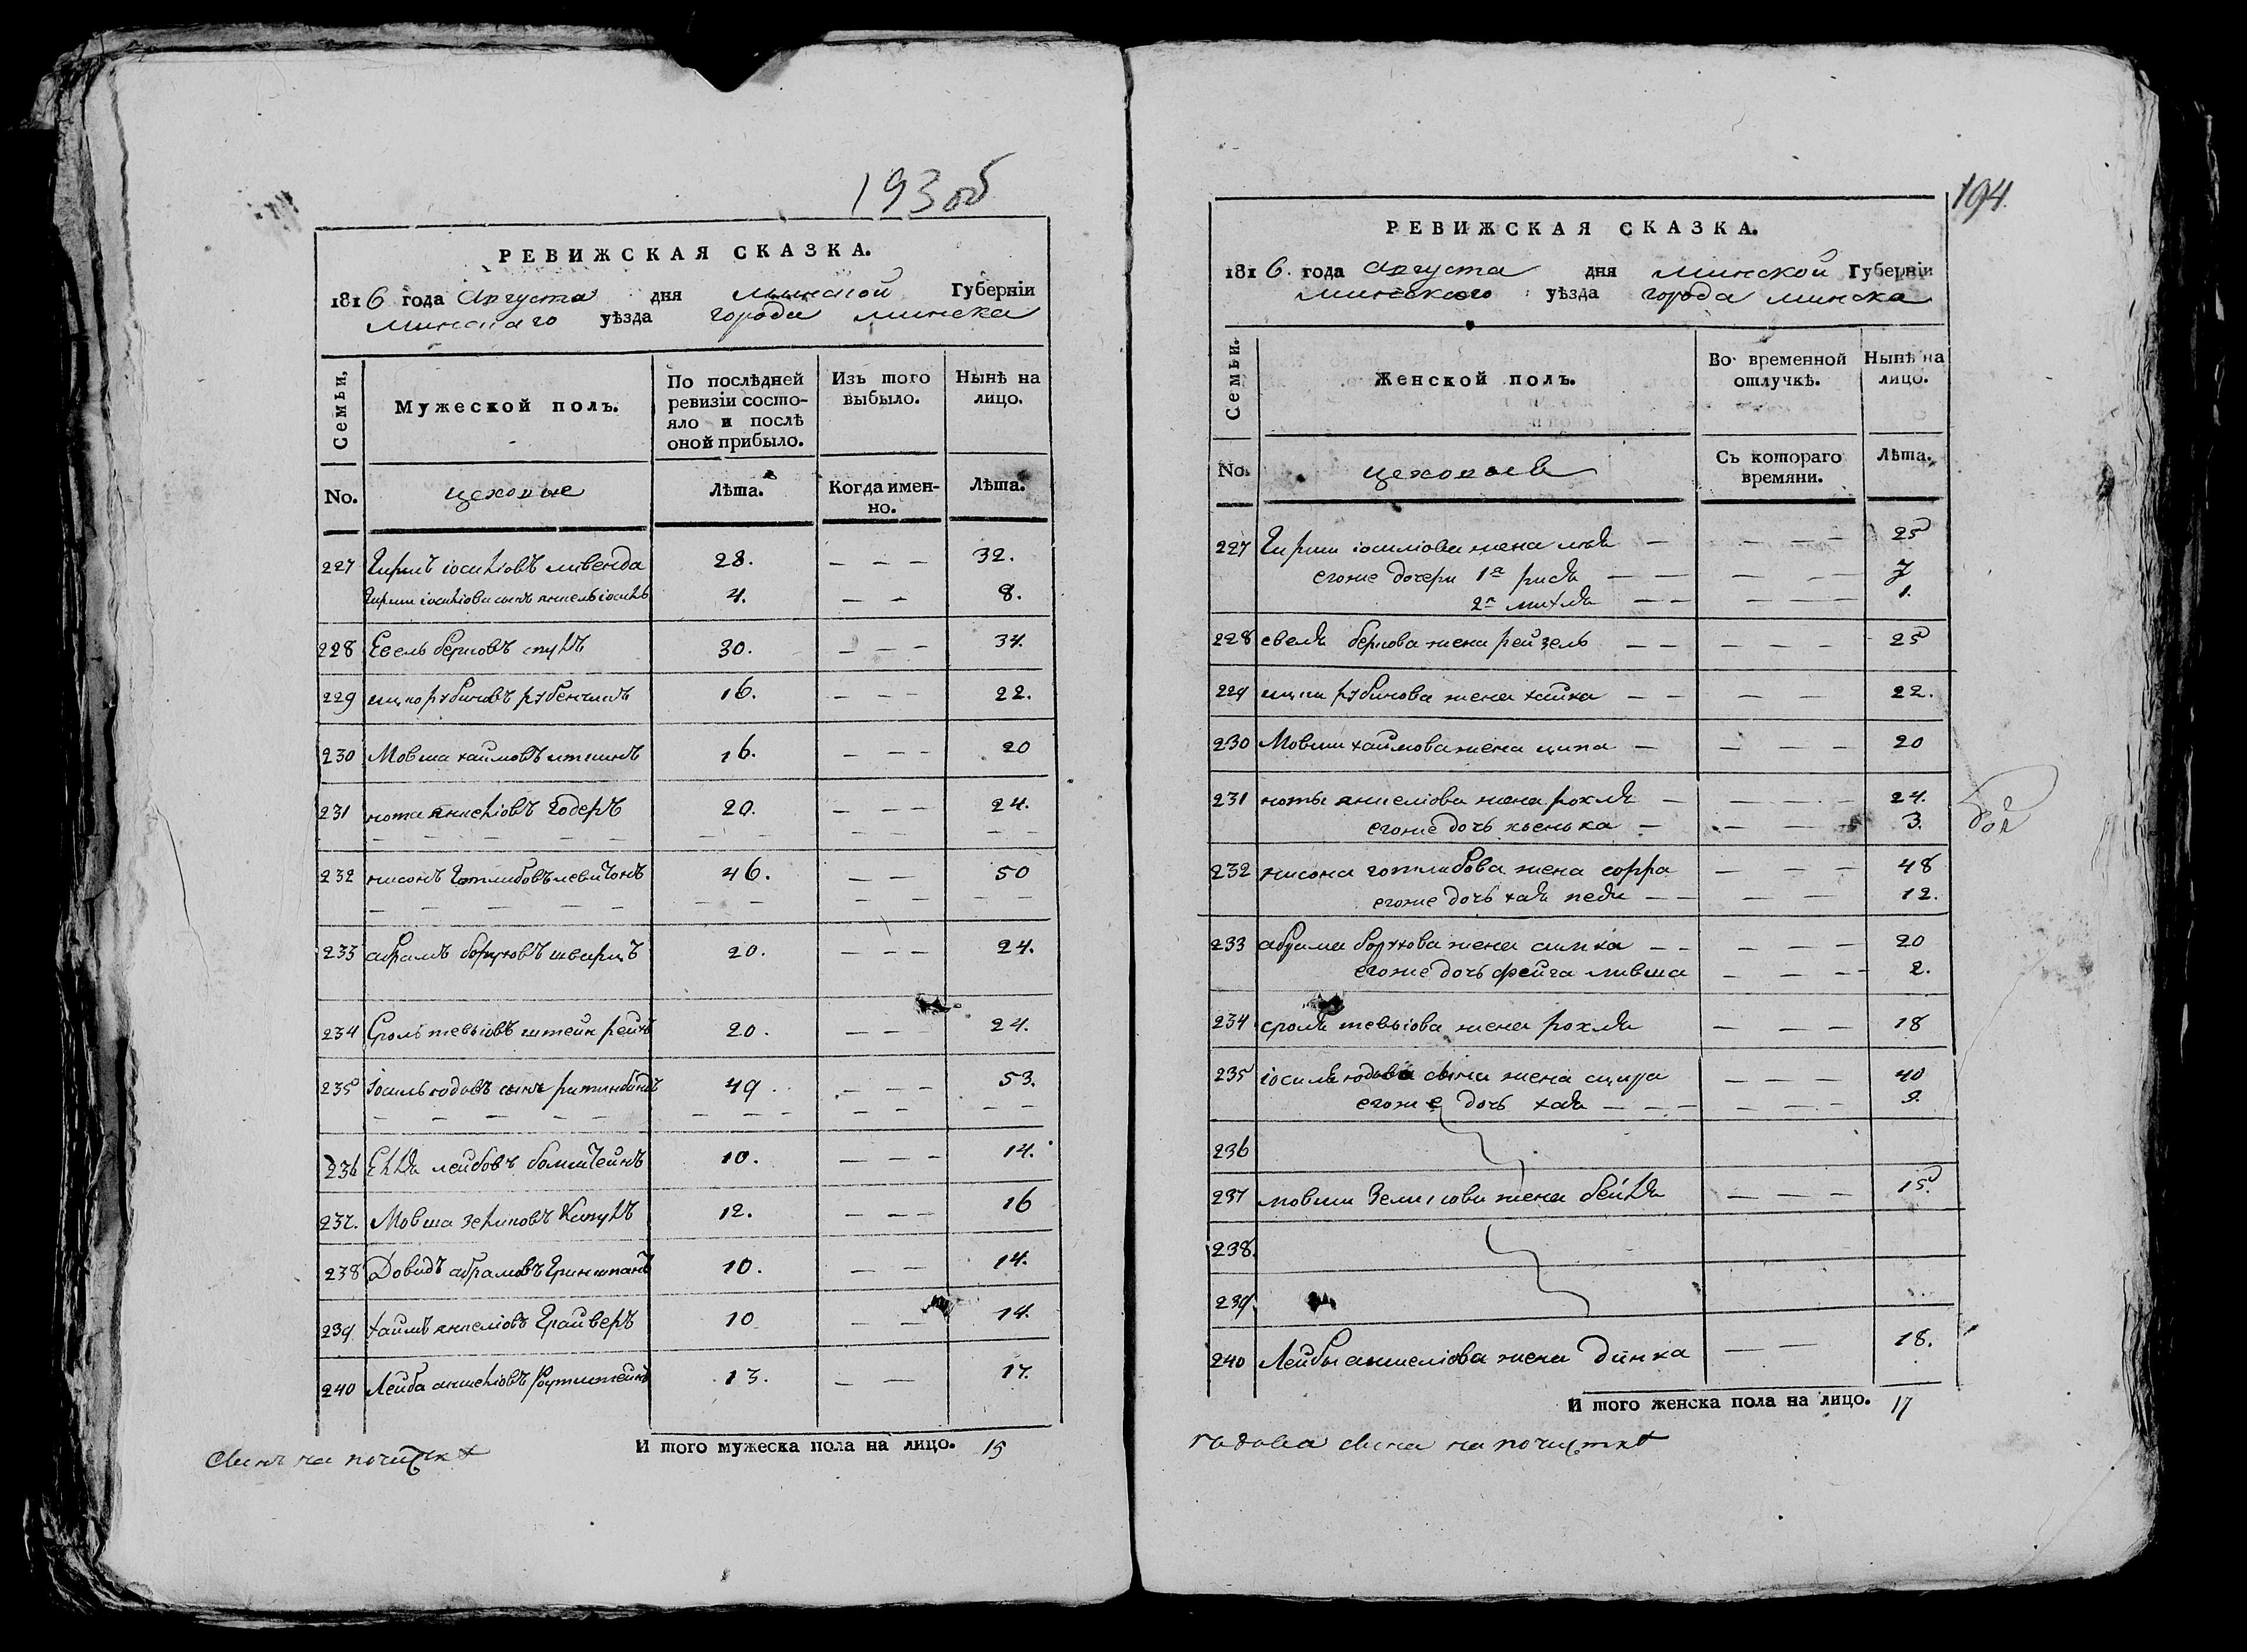 193 об
РЕВИЖСКАЯ СКАЗКА.
1816 года Августа дня Минской Губерніи
Минскаго уѣзда города Минска
Семьи,
Мужеской полъ.
По послѣдней ревизіи состо-
яло и послѣ
оной прибыло.
Изъ того выбыло.
Нынѣ на лицо.
No. цеховые Лѣта. Когда имен-
но.
Лѣта.
227 Гиршъ іосиліовъ ливенда 28. — — — 32.
Гирши іосиліова сынъ іосиль 4. — — 8.
228 Евель берковъ 30. — — — 34.
229 ицко рубиновъ рубенчикъ 16. — — — 22.
230 Мовша хаимовъ 16. — — — 20
231 нота янкеліовъ Годеръ 20. — — — 24.
232 нисонъ Готлибовъ левитонъ 46. — — 50
233 абрамъ боруховъ шварцъ 20. — — — 24.
234 Сроль тевьіовъ штейн рейхъ 20. — — 24.
235 Іосиль юдовъ сынъ 49 — — — 53.
236 лейбовъ 10. — — — 14.
237. Мовша зеликовъ 12. — — — 16
238 Довидъ абрамовъ Гриншпанъ 10. — — 14.
239 хаимъ янкеліовъ Грайверъ 10 — — 14.
240 Лейба аншеліовъ 13. — — 17.
И того мужеска пола на лицо. 15
сынъ на почисткѣ
194.
РЕВИЖСКАЯ СКАЗКА.
1816. года Августа дня Минской Губерніи
Минского уѣзда города Минска
Семьи.
Женской полъ.
Во временной
отлучкѣ.
Нынѣ на
лицо.
No. цеховые Съ котораго
времяни.
Лѣта.
227 Гирши іосиліова жена — — — — 25
егоже дочери 1я рися — — — — 7
2я михля — — — — — 1.
228 евеля беркова жена рейзель — — — — — 25
229 ицки рубинова жена хайка — — — — 22.
230 Мовши хаимова жена ципа — — — — 20
231 ноты янкеліова жена рохля — — — — 24.
егоже дочь — — — 3.
232 нисона готлибова жена сорра — — — 48
егоже дочь хая песя — — — — 12.
233 абрама борухова жена симка — — — — — 20
егоже дочь фейга ливша — — — — 2.
234 сроля тевьіова жена рохля — — — 18
235 іосиля юдова сына жена — — — 40
егоже дочь хая — — — — — — 9.
236
237 мовши Зеликова жена бейля — — — 15.
238.
239.
240 Лейбы аншеліова жена динка — — 18.
И того женска пола на лицо. 17
юдова сына на почисткѣ